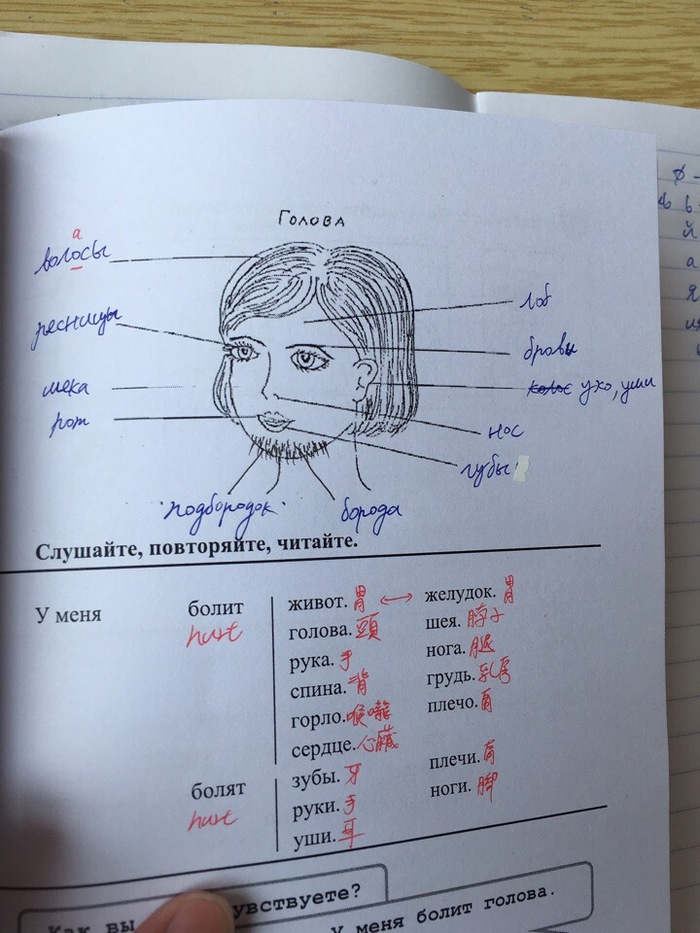 Голова
а
волосы
лоб
ресницы
бровы
щека
колос ухо, уши
рот
нос
губы
подбородок
борода
Слушайте, повторяйте, читайте.
У меня болит живот. 胃 ↔ желудок. 胃
hurt голова. 頭 шея. 脖子
рука. 手 нога. 腿
спина. 背 грудь. 乳房
горло. 喉嚨 плечо. 肩
сердце. 心臟
болят зубы. 牙 плечи. 肩
hurt руки. 手 ноги. 腳
уши. 耳
Как вы чувствуете?
У меня болит голова.